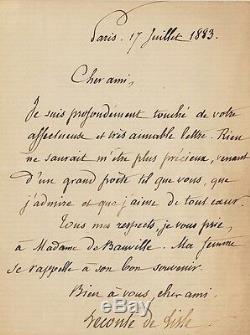 Paris. 17 Juillet 1883.
Cher ami,
Je suis profondément touché de votre
affectueuse et très aimable lettre. Rien
ne saurait m'être plus précieux, venant
d'un grand poète tel que vous, que
j'admire et que j'aime de tout cœur.
Tous mes respects, je vous prie,
à Madame de Banville. Ma femme
se rappelle à son bon souvenir.
Bien à vous, cher ami.
Leconte de Lisle